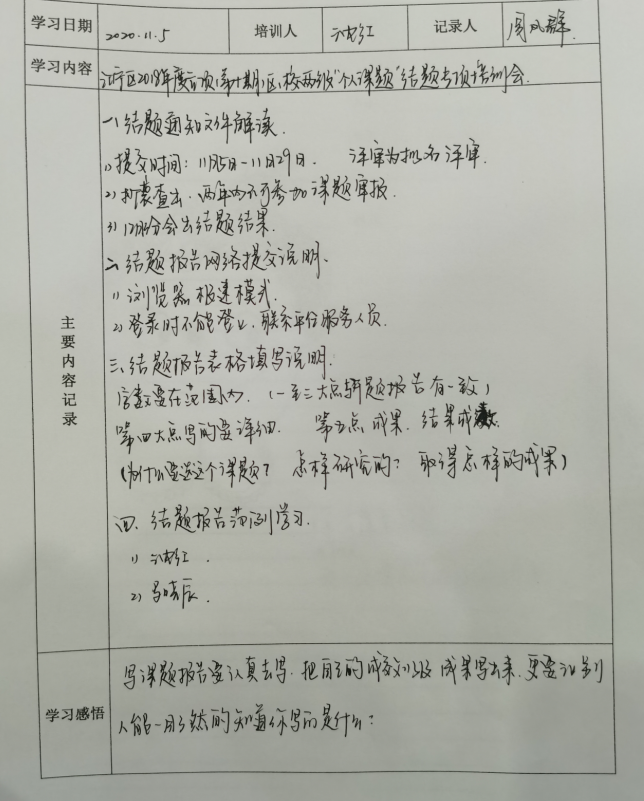 学习日期 2020.11.5 培训人 沈红 记录人 周凤群
学习内容 江宁区2018年度立项(第十期)区、校两级"个人课题"结题专项培训会.
主要内容记录
一、结题通知文件解读.
1) 提交时间: 11月5日-11月29日. 评审为批名评审
2) 抄袭查出, 两年内不可参加课题审报.
3) 12月份会出结题结果.
二、结题报告网络提交说明.
1) 浏览器极速模式.
2) 登录时不能登上, 联系平台服务人员.
三、结题报告表格填写说明.
字数要在范围内. (一至三大点与开题报告有一致)
第四大点写的要详细. 第五点成果. 结果成效.
(为什么要选这个课题? 怎样研究的? 取得怎样的成果)
四、结题报告范例学习.
1) 沈红.
2) 马晓辰.
学习感悟
写课题报告要认真去写. 把自己的成效以及成果写出来, 更要让别
人能一目了然的知道你写的是什么?